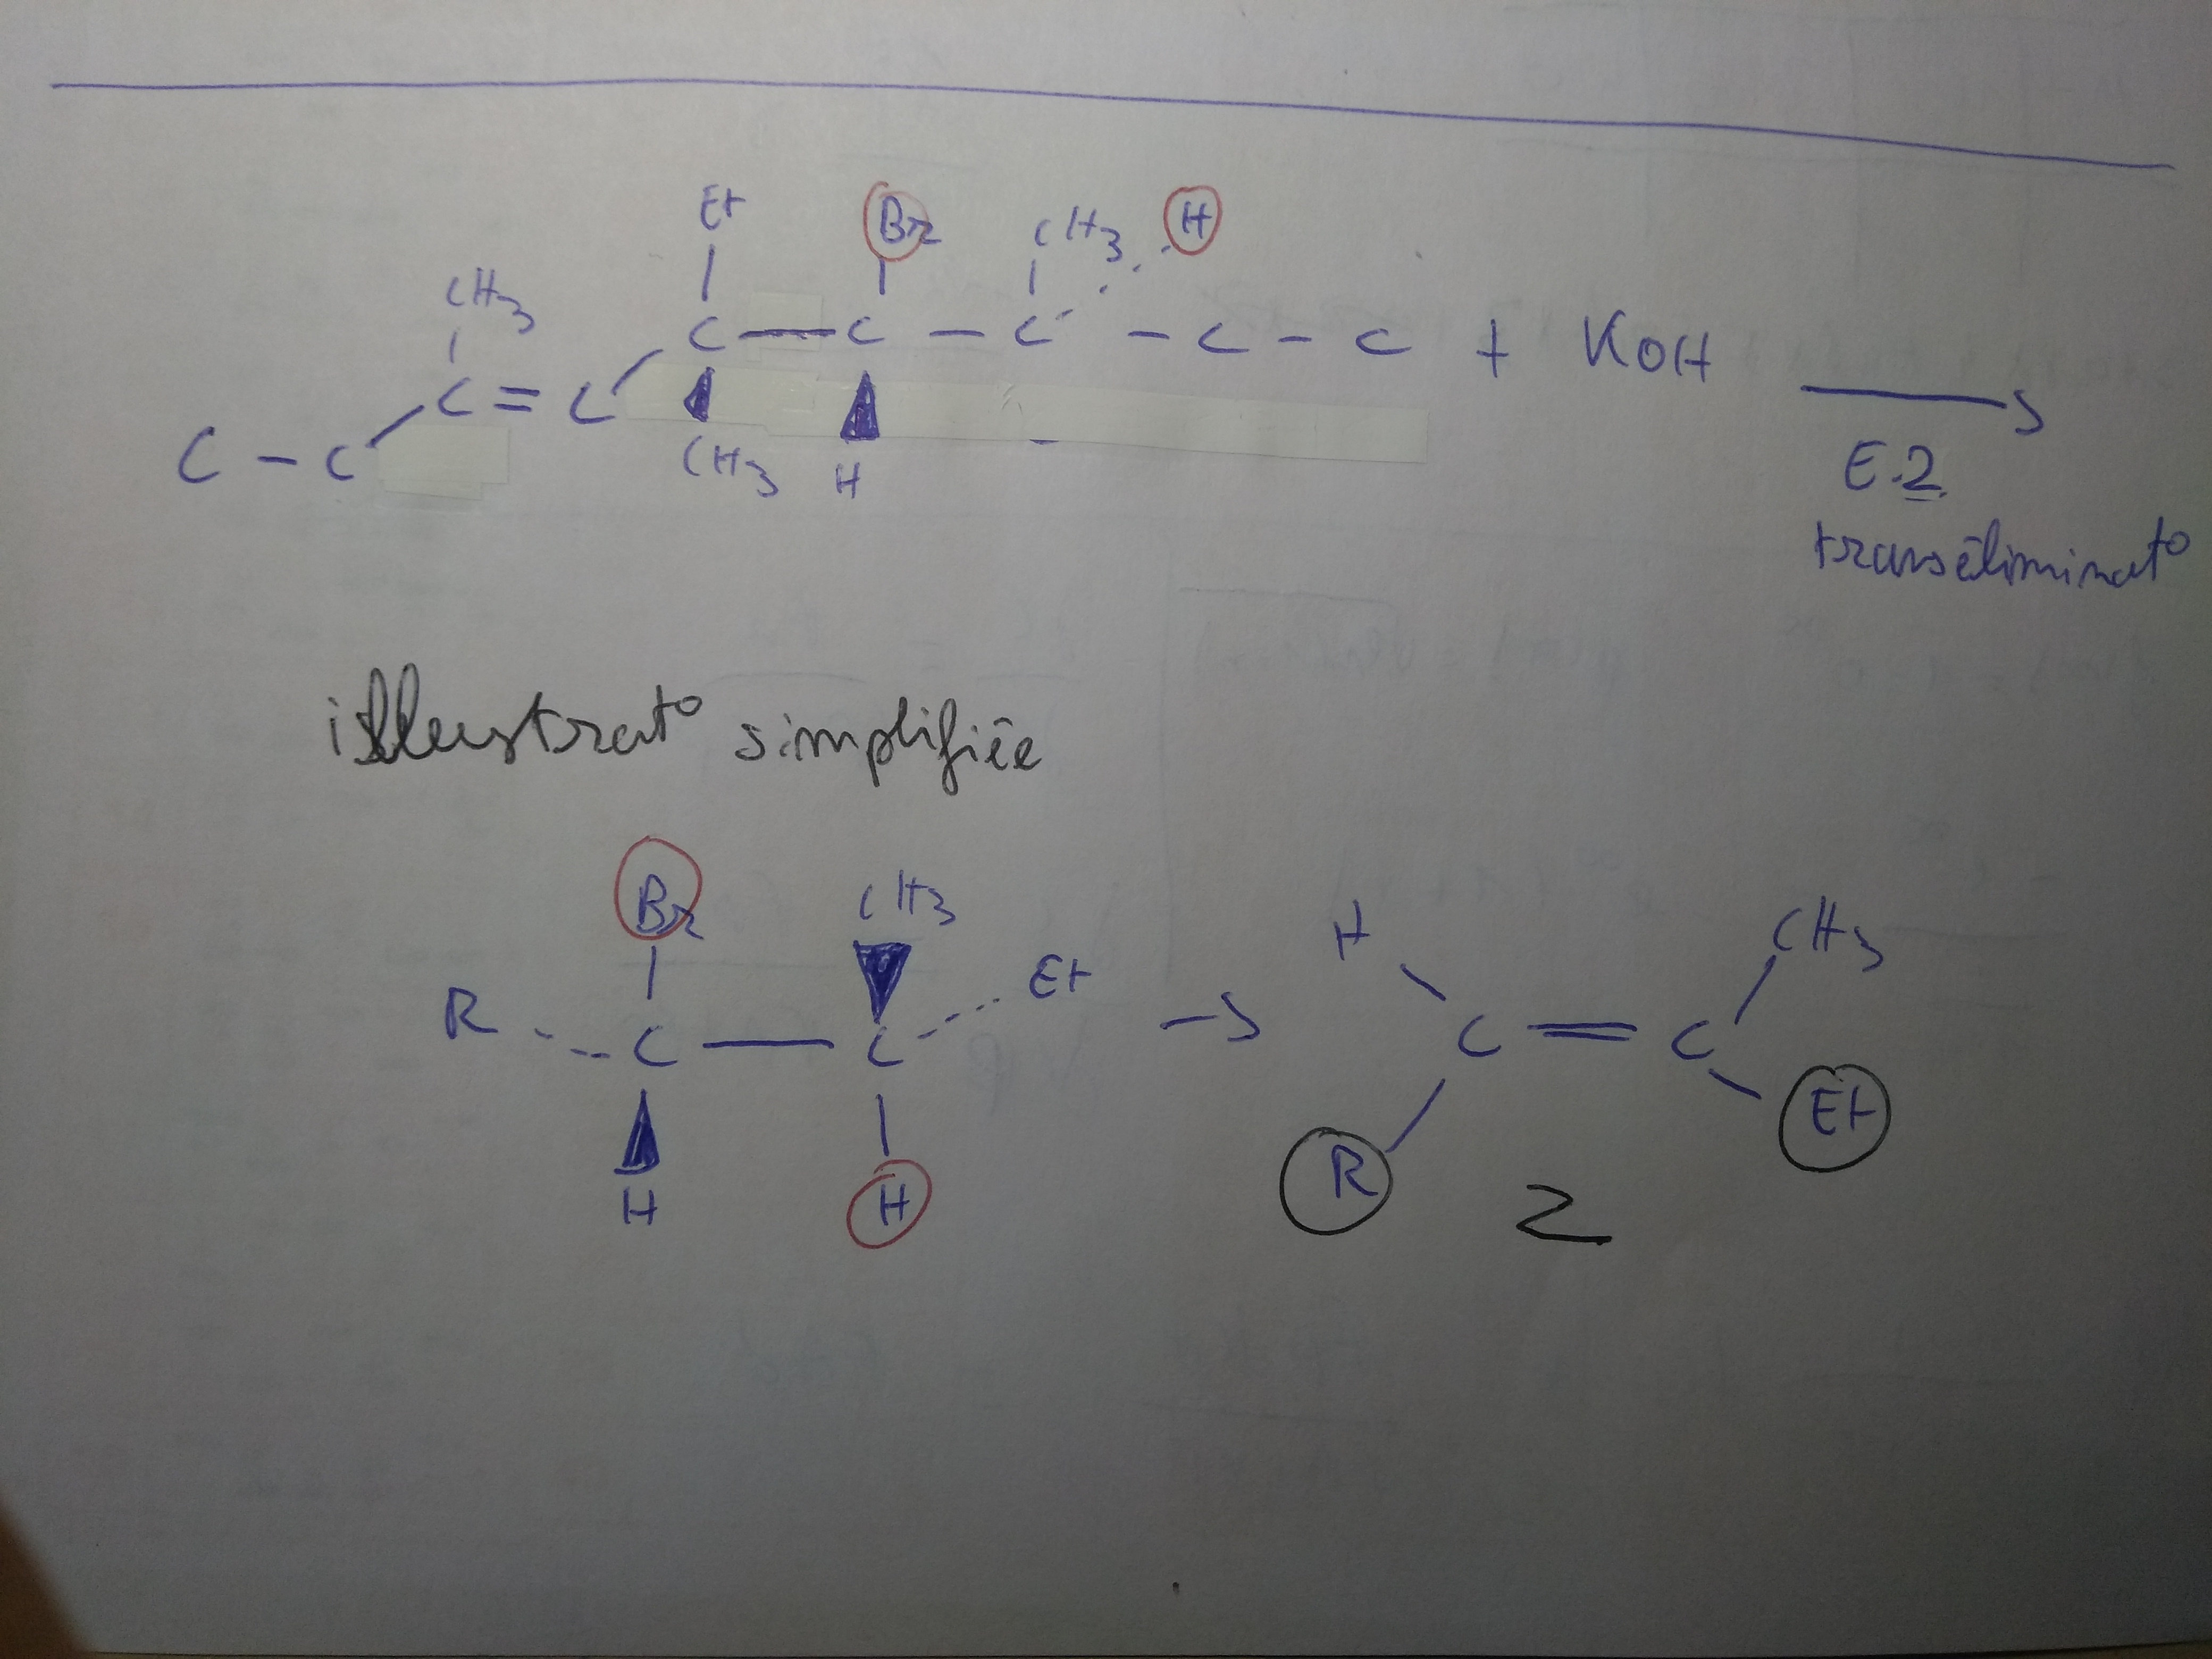 Et Br CH3 H
CH3
C - C - C - C - C + KOH
C = C
C - C CH3 H E.2
transéliminat°
illustrat° simplifiée
Br CH3 H CH3
R Et
C - C → C = C
Et
H H R Z